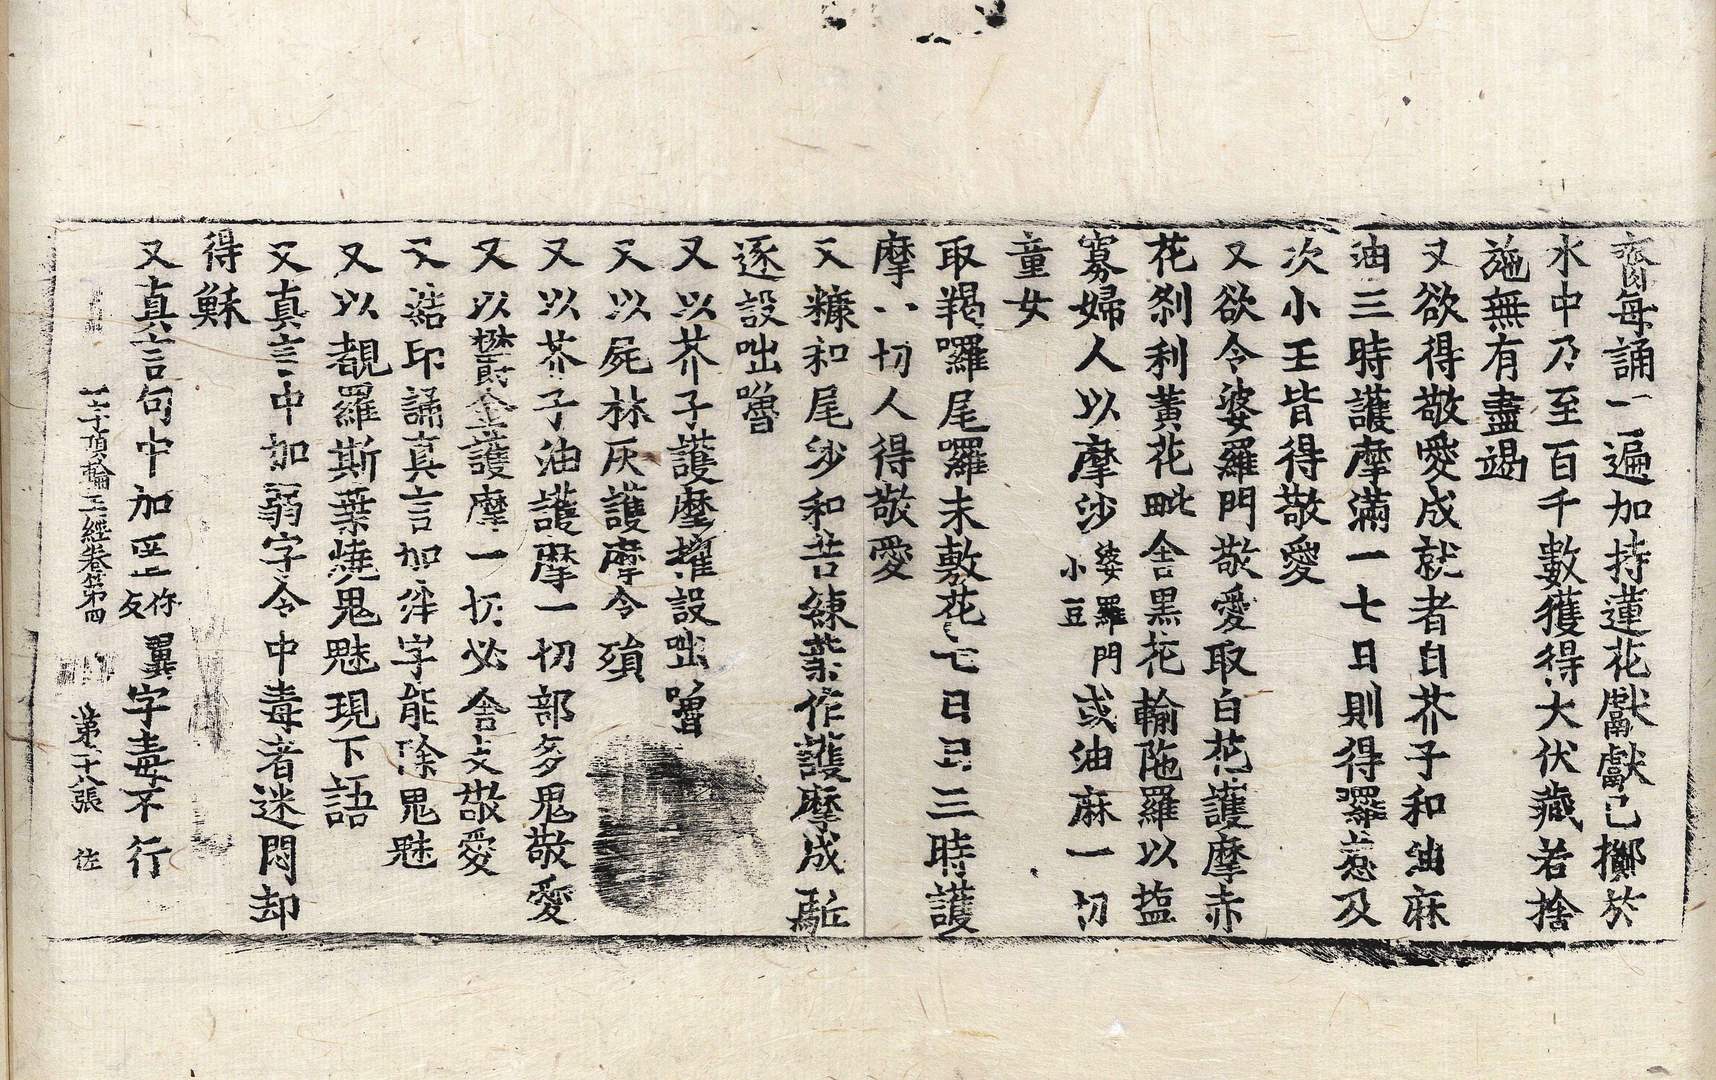 齋每誦一遍加持蓮花獻獻已擲於
水中乃至百千數獲得大伏藏若捨
施無有盡竭
又欲得敬愛成就者白芥子和油麻
油三時護摩滿一七日則得羅惹及
次小王皆得敬愛
又欲令婆羅門敬愛取白花護摩赤
花刹利黃花毗舍黑花輸陁羅以塩
寡婦人以摩沙婆羅門小豆或油麻一切
童女
取羯囉尾囉末敷花七日日三時護
摩一切人得敬愛
又糠和尾沙和苦練葉作護摩成䭾
逐設咄嚕
又以芥子護摩摧設咄嚕
又以屍林灰護摩令殞
又以芥子油護摩一切部多鬼敬愛
又以欝金護摩一切必舍支敬愛
又結印誦真言加泮字能除鬼魅
又以覩羅斯葉燒鬼魅現下語
又真言中加弱字令中毒者迷悶却
得穌
又真言句中加 翼字毒不行
一字頂輪王經卷第四 第十八張 佐